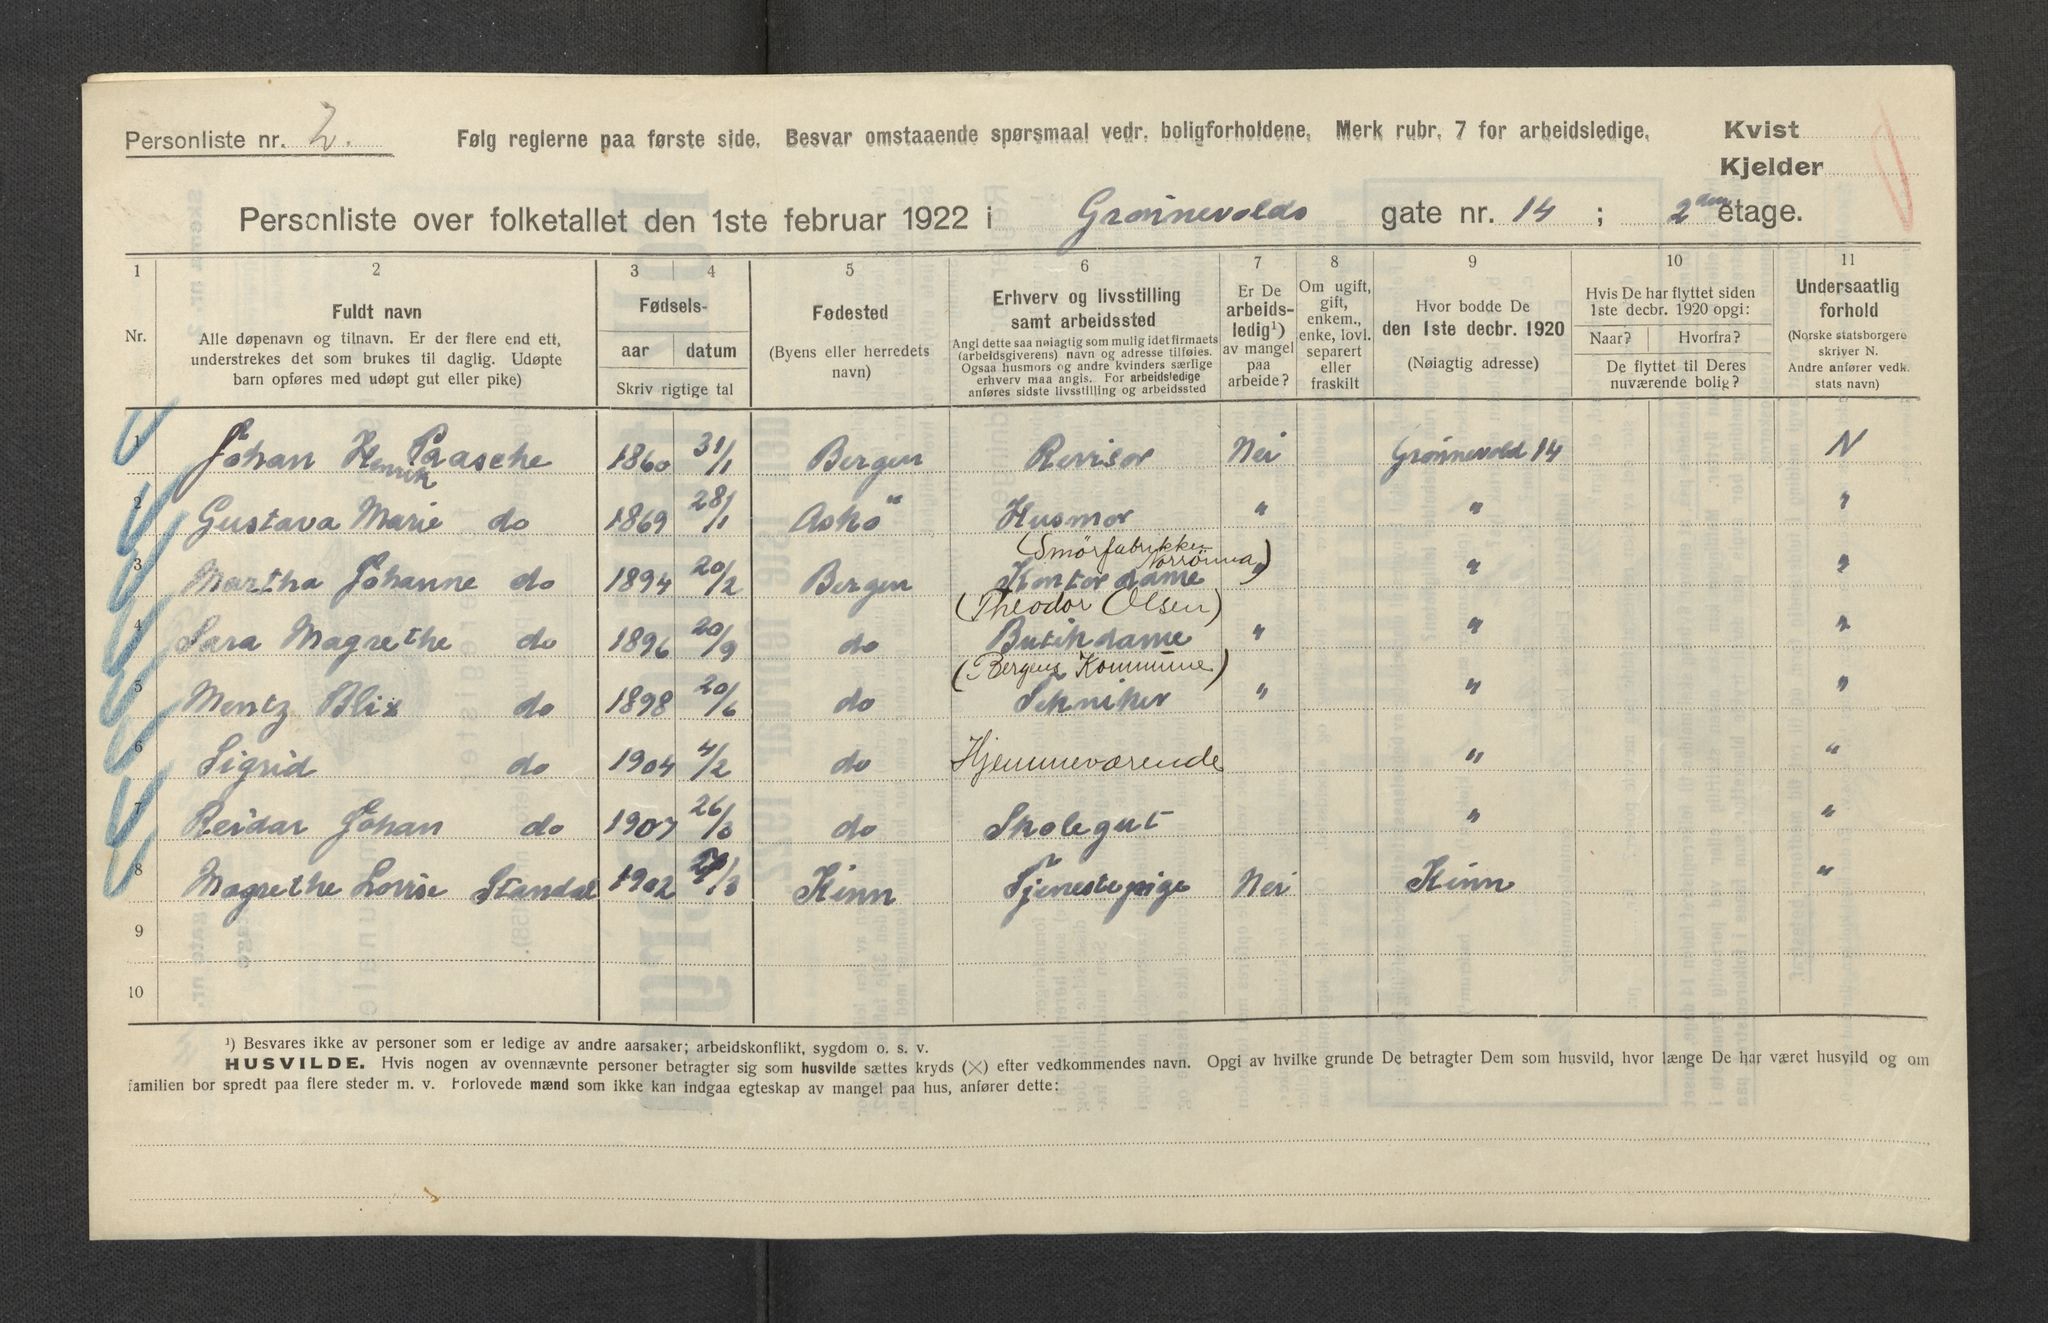 Personliste nr. 2.
Følg reglerne paa første side. Besvar omstaaende spørsmaal vedr. boligforholdene. Merk rubr. 7 for arbeidsledige.
Kvist
Kjelder
Personliste over folketallet den 1ste februar 1922 i Grønnevolds gate nr. 14 ; 2den etage.
1 2 3 4 5 6 7 8 9 10 11
Nr.
Fuldt navn
Alle døpenavn og tilnavn. Er der flere end ett,
understrekes det som brukes til daglig. Udøpte
barn opføres med udøpt gut eller pike)
Fødsels-
aar datum
Skriv rigtige tal
Fødested
(Byens eller herredets
navn)
Erhverv og livsstilling
samt arbeidssted
Angi dette saa nøiagtig som mulig idet firmaets
(arbeidsgiverens) navn og adresse tilføies.
Ogsaa husmors og andre kvinders særlige
erhverv maa angis. For arbeidsledige
anføres sidste livsstilling og arbeidssted
Er De
arbeids-
ledig¹)
av mangel
paa
arbeide?
Om ugift,
gift,
enkem.,
enke, lovl.
separert
eller
fraskilt
Hvor bodde De
den 1ste decbr. 1920
(Nøiagtig adresse)
Hvis De har flyttet siden
1ste decbr. 1920 opgi:
Naar? Hvorfra?
De flyttet til Deres
nuværende bolig?
Undersaatlig
forhold
(Norske statsborgere
skriver N.
Andre anfører vedk.
stats navn)
1 Johan Henrik Paasche 1860 31/1 Bergen Revisor Nei Grønnevold 14 N
2 Gustava Marie do 1869 28/1 Askö Husmor " " "
(Smörfabrikken Norröna)
3 Martha Johanne do 1894 20/2 Bergen Kontordame " " "
(Theodor Olsen)
4 Sara Magrethe do 1896 20/9 do Butikdame " " "
(Bergens Kommune)
5 Mentz Blix do 1898 20/6 do Tekniker " " "
6 Sigrid do 1904 4/2 do Hjemmeværende " "
7 Reidar Johan do 1907 26/8 do Skolegut " "
8 Magrethe Lovise Standal 1902 /3 Kinn Tjenestepige Nei Kinn "
9
10
¹) Besvares ikke av personer som er ledige av andre aarsaker; arbeidskonflikt, sygdom o. s. v.
HUSVILDE. Hvis nogen av ovennævnte personer betragter sig som husvilde sættes kryds (×) efter vedkommendes navn. Opgi av hvilke grunde De betragter Dem som husvild, hvor længe De har været husvild og om
familien bor spredt paa flere steder m. v. Forlovede mænd som ikke kan indgaa egteskap av mangel paa hus, anfører dette: